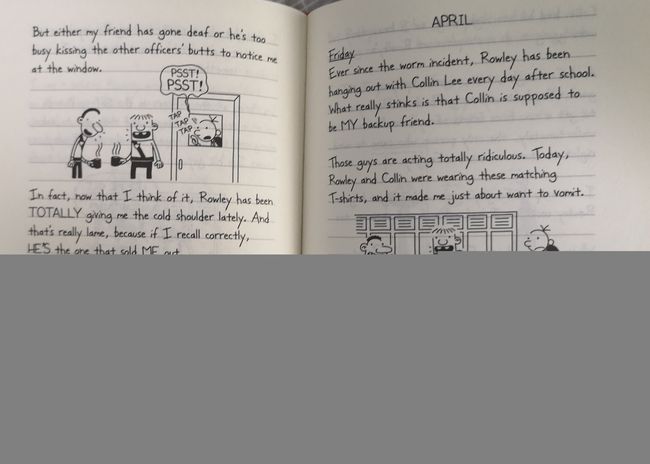 But either my friend has gone deaf or he's too
busy kissing the other officers' butts to notice me
at the window.
PSST!
PSST!
TAP
TAP
TAP
In fact, now that I think of it, Rowley has been
TOTALLY giving me the cold shoulder lately. And
that's really lame, because if I recall correctly,
HE'S the one that sold ME out.
APRIL
Friday
Ever since the worm incident, Rowley has been
hanging out with Collin Lee every day after school.
What really stinks is that Collin is supposed to
be MY backup friend.
Those guys are acting totally ridiculous. Today,
Rowley and Collin were wearing these matching
T-shirts, and it made me just about want to vomit.